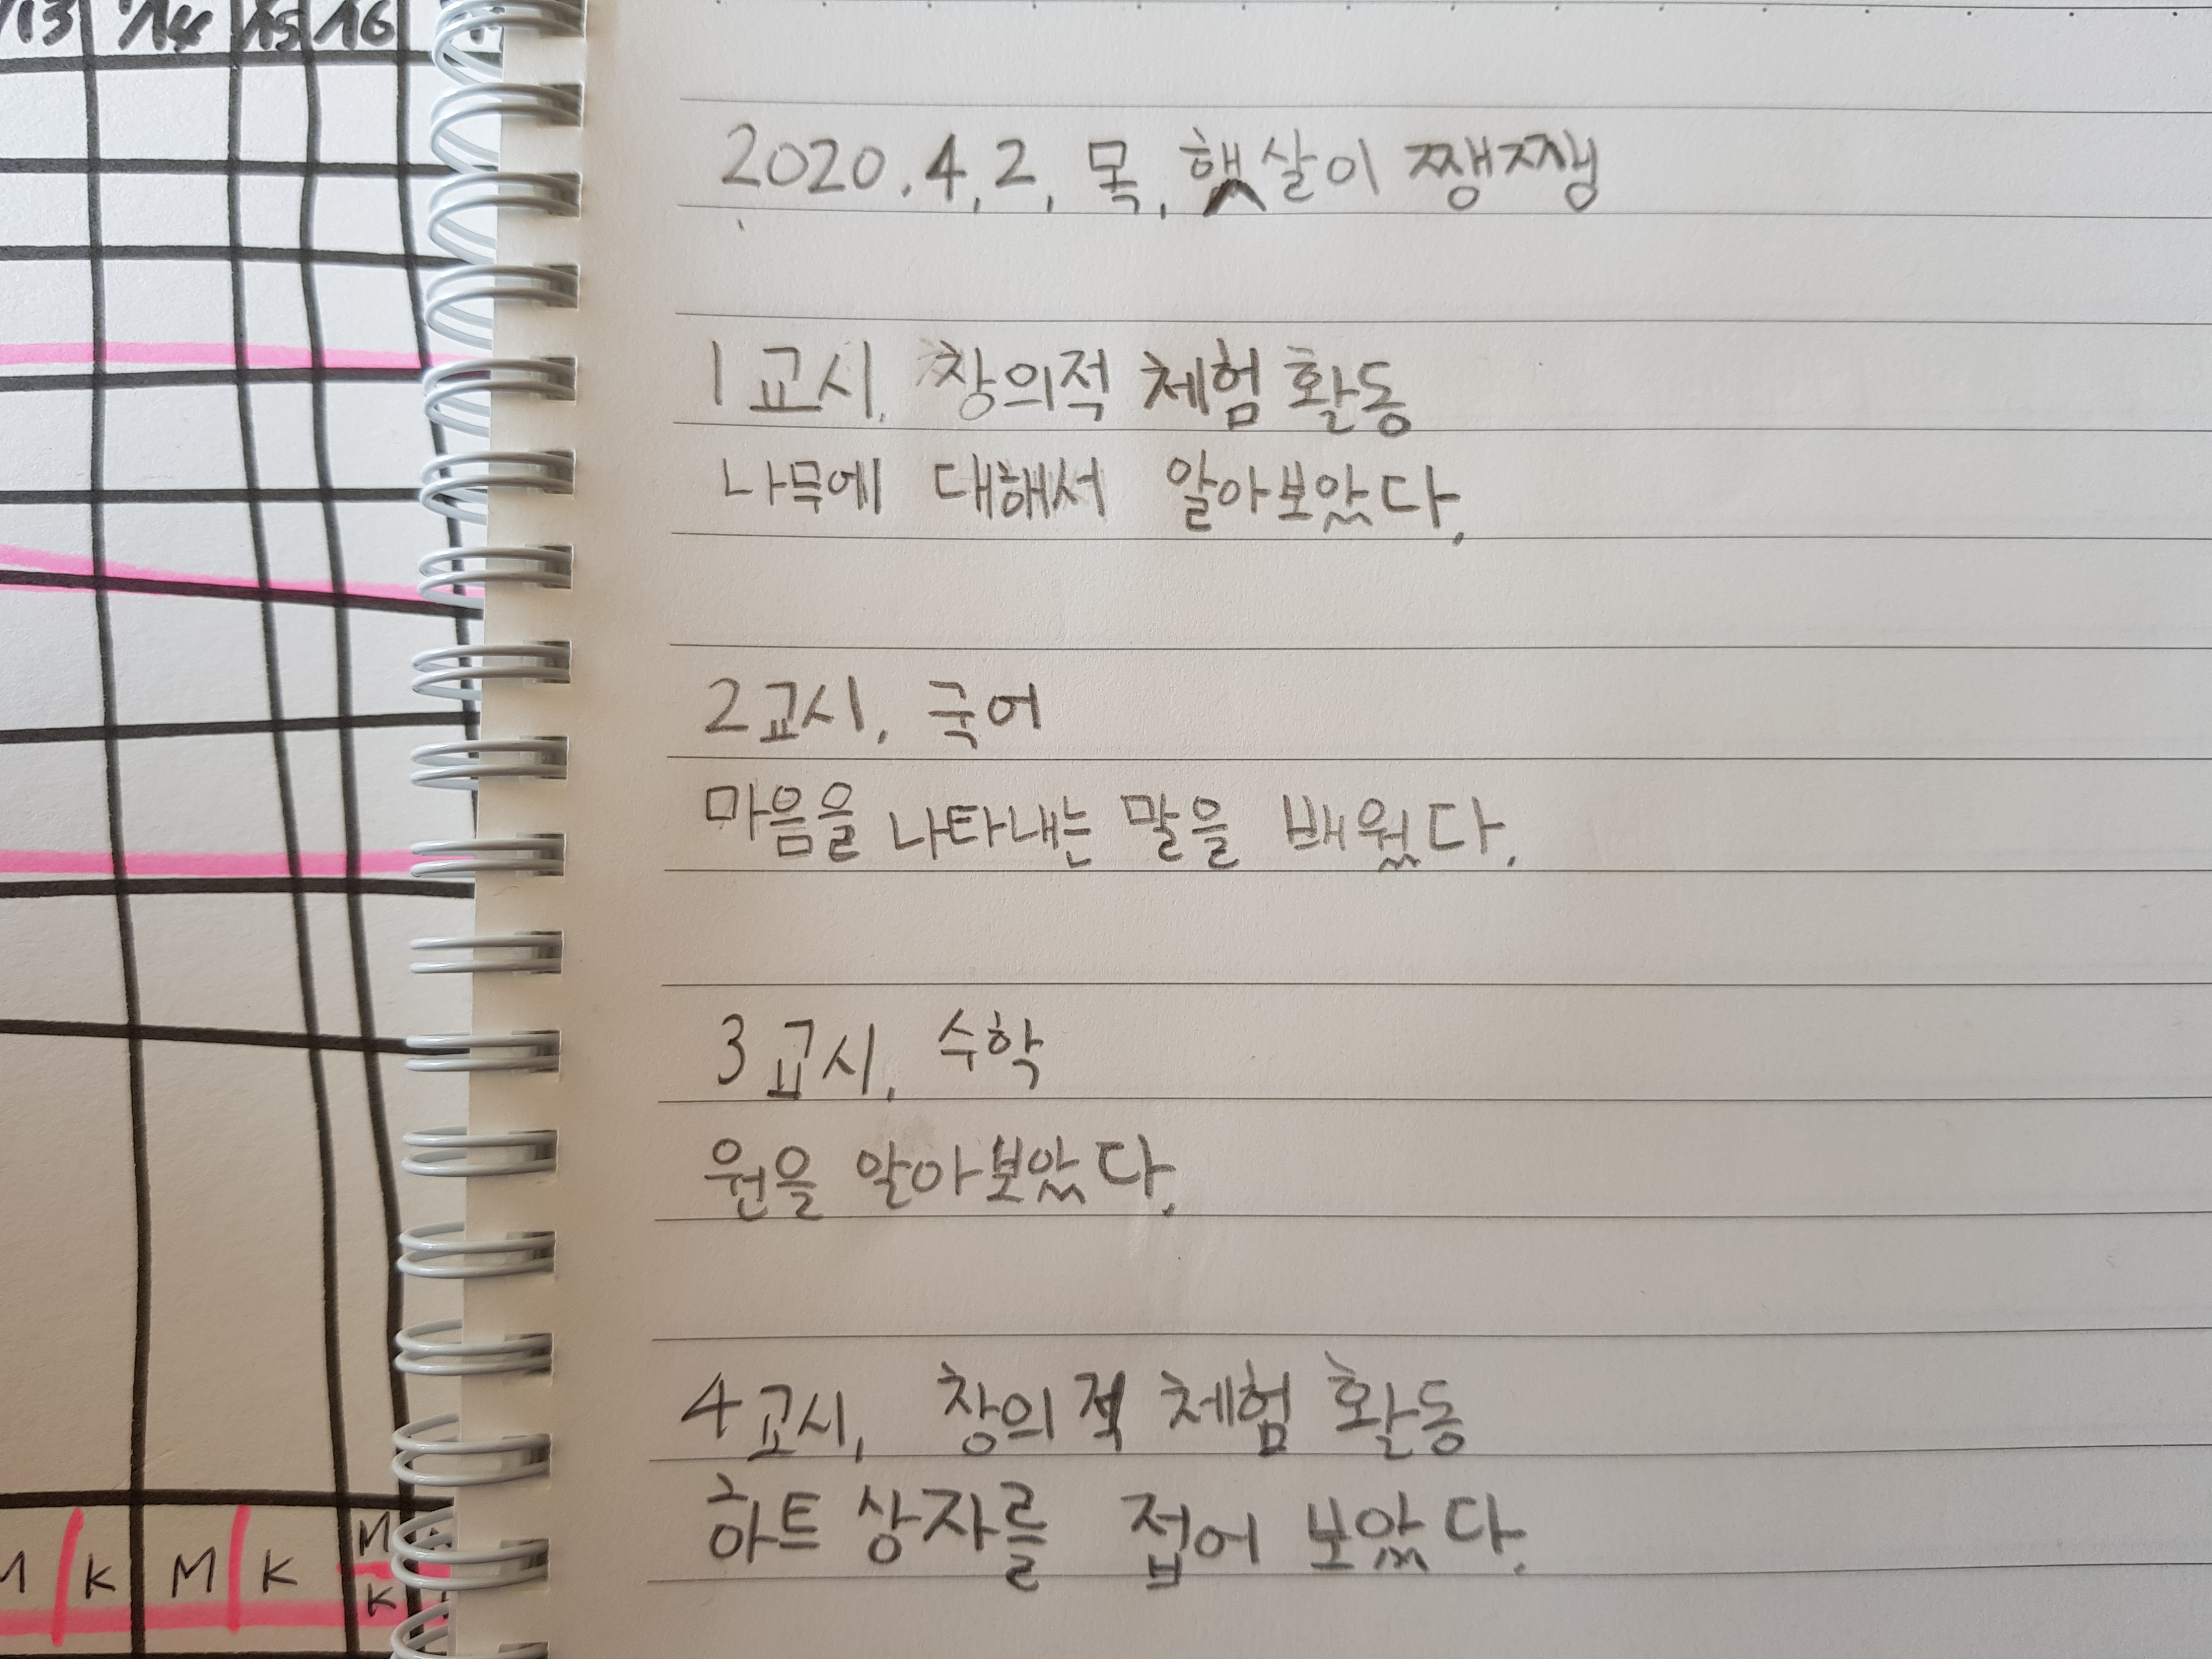 13 '14 '15 '16
2020.4.2. 목. 햇살이 쨍쨍
1교시. 창의적 체험 활동
나무에 대해서 알아보았다.
2교시. 국어
마음을 나타내는 말을 배웠다.
3교시. 수학
원을 알아보았다.
4교시. 창의적 체험 활동
하트 상자를 접어 보았다.
M K M K M
K